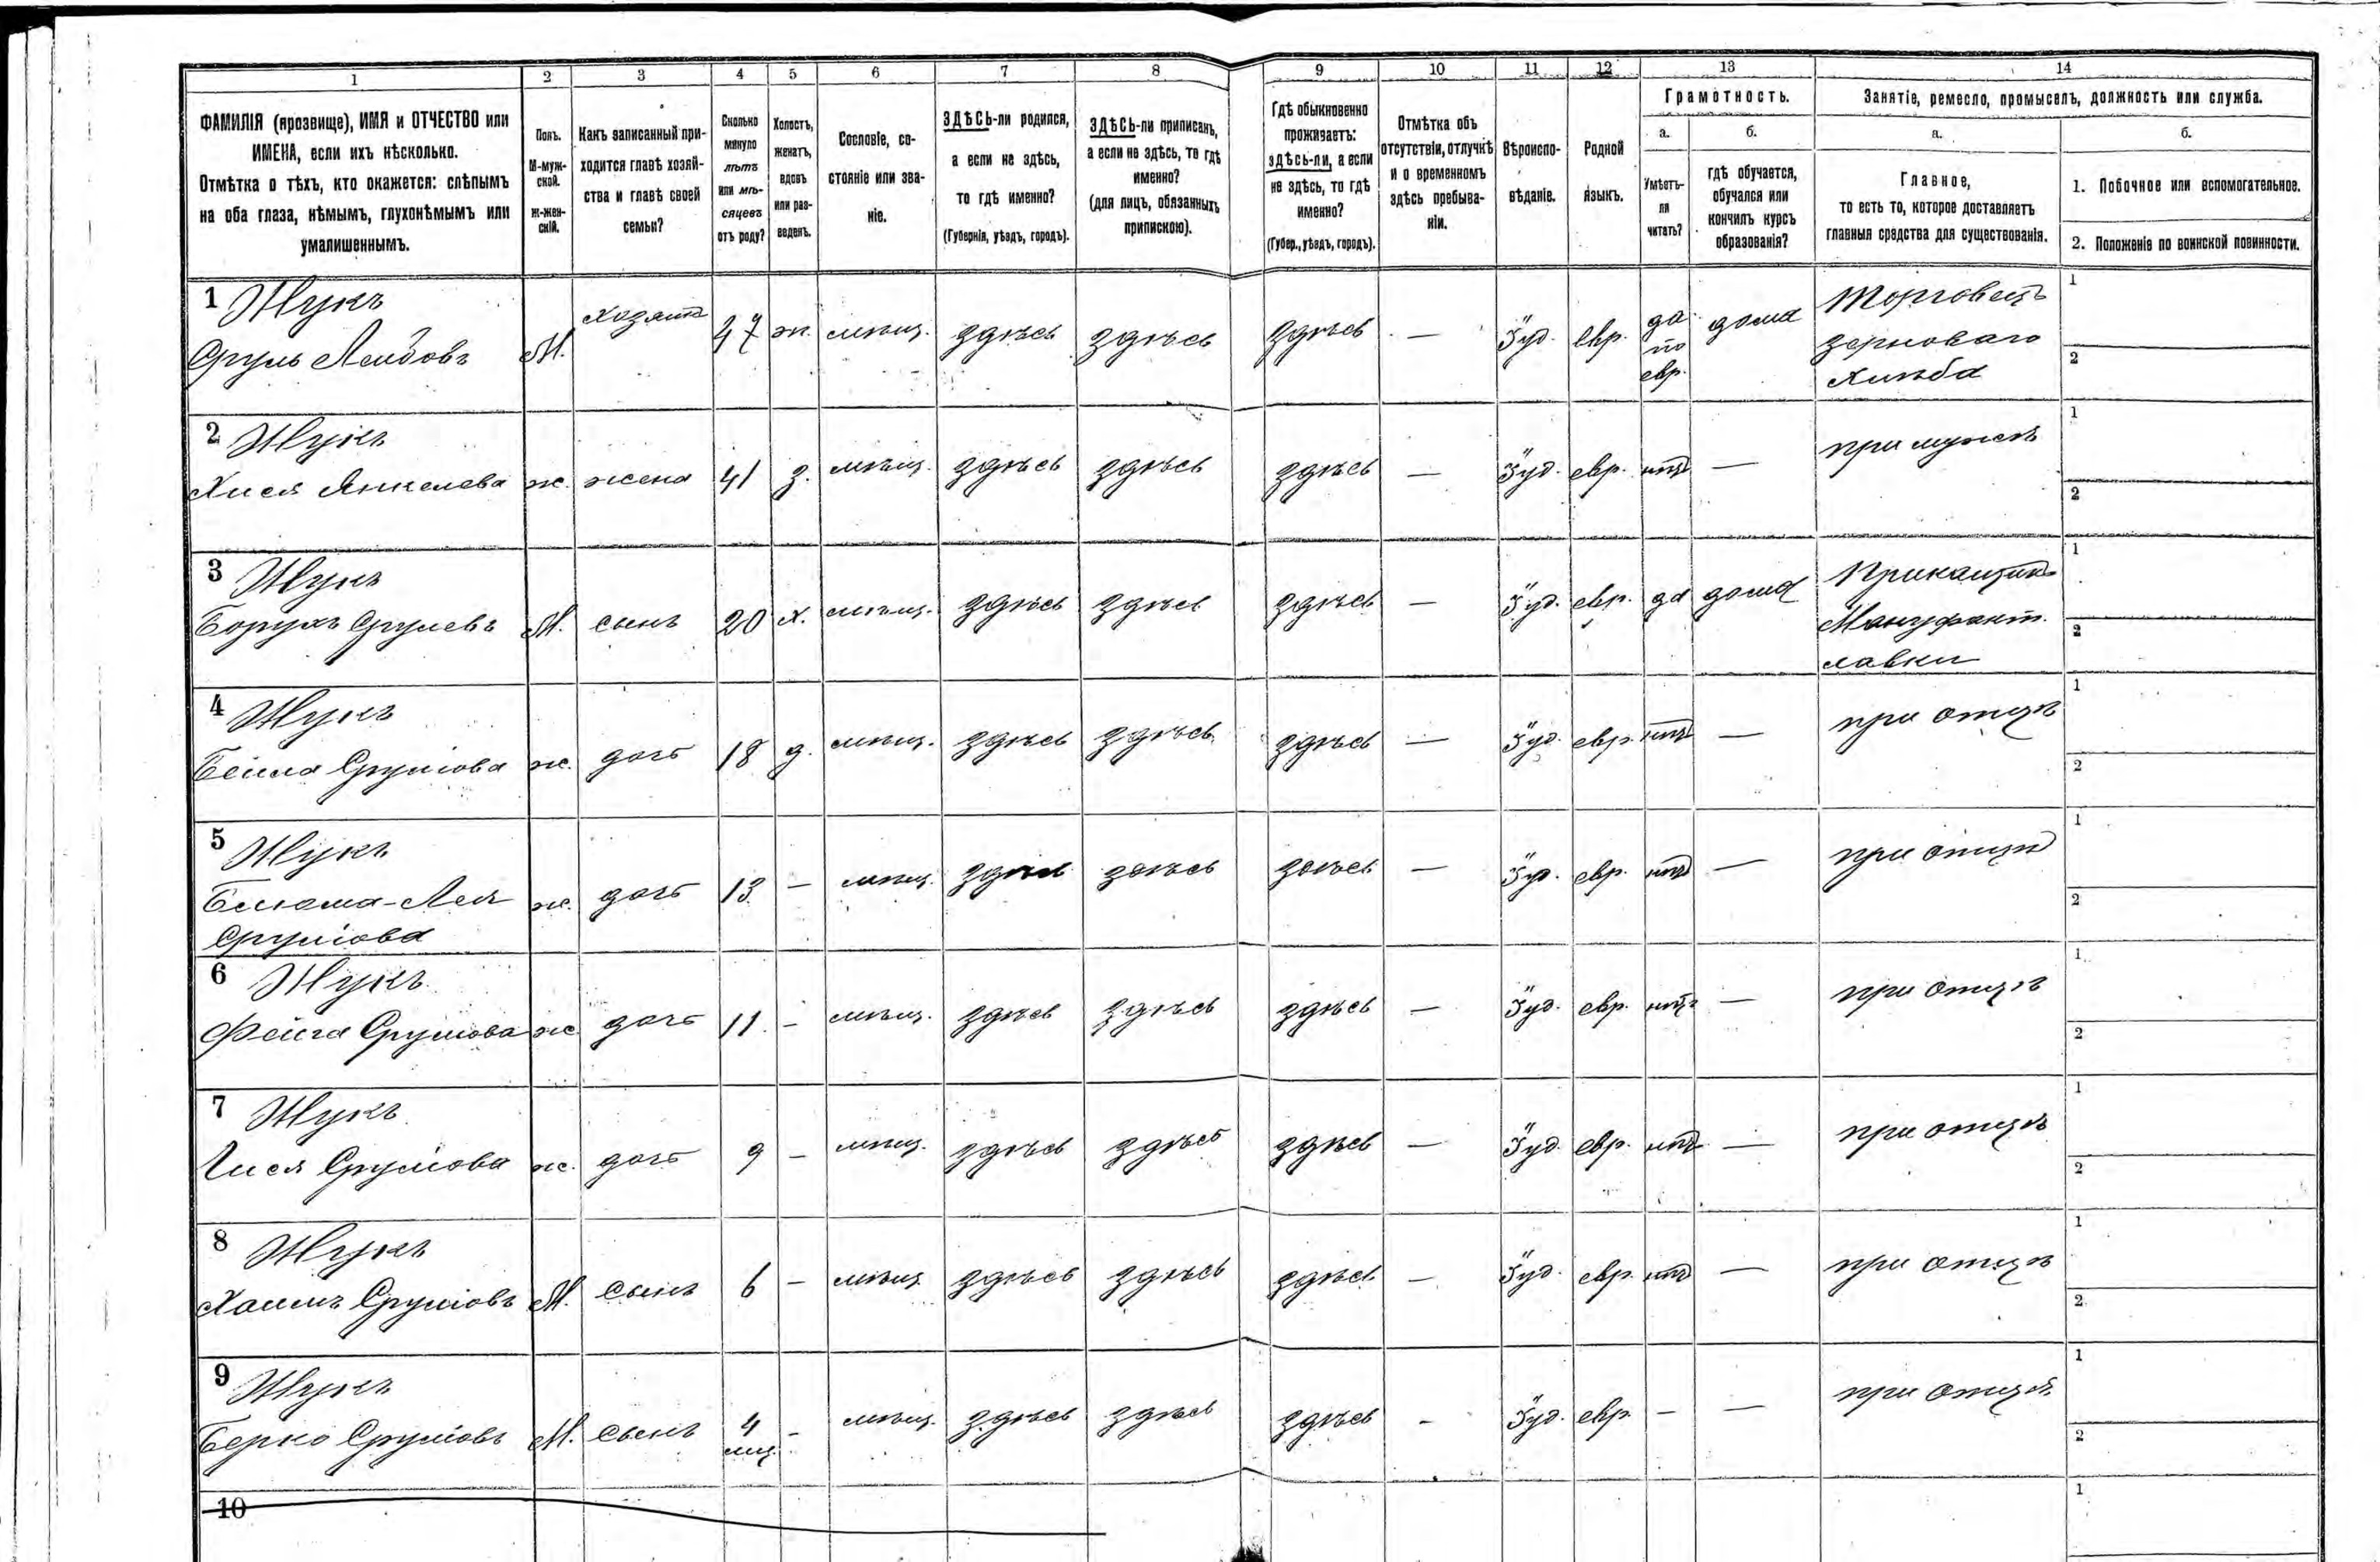 1 2 3 4 5 6 7 8 9 10 11 12 13 14
ФАМИЛІЯ (прозвище), ИМЯ и ОТЧЕСТВО или
ИМЕНА, если ихъ нѣсколько.
Отмѣтка о тѣхъ, кто окажется: слѣпымъ
на оба глаза, нѣмымъ, глухонѣмымъ или
умалишеннымъ.
Полъ.
М-муж-
ской.
Ж-жен-
скій.
Какъ записанный при-
ходится главѣ хозяй-
ства и главѣ своей
семьи?
Сколько
минуло
лѣтъ
или мѣ-
сяцевъ
отъ роду?
Холостъ,
женатъ,
вдовъ
или раз-
веденъ.
Сословіе, со-
стояніе или зва-
ніе.
ЗДѢСЬ-ли родился,
а если не здѣсь,
то гдѣ именно?
(Губернія, уѣздъ, городъ).
ЗДѢСЬ-ли приписанъ,
а если не здѣсь, то гдѣ
именно?
(для лицъ, обязанныхъ
припискою).
Гдѣ обыкновенно
проживаетъ:
здѣсь-ли, а если
не здѣсь, то гдѣ
именно?
(Губер., уѣздъ, городъ).
Отмѣтка объ
отсутствіи, отлучкѣ
и о временномъ
здѣсь пребыва-
ніи.
Вѣроиспо-
вѣданіе.
Родной
языкъ.
Грамотность.
а.
Умѣетъ-
ли
читать?
б.
гдѣ обучается,
обучался или
кончилъ курсъ
образованія?
Занятіе, ремесло, промыселъ, должность или служба.
а.
Главное,
то есть то, которое доставляетъ
главныя средства для существованія.
б.
1. Побочное или вспомогательное.
2. Положеніе по воинской повинности.
1 Жукъ
Сруль Лейбовъ М. хозяинъ 47 ж. мѣщ. здѣсь здѣсь здѣсь — Іуд. евр. да по евр. дома Торговецъ зерноваго хлѣба 1 2
2 Жукъ
Хися Янкелева ж. жена 41 з. мѣщ. здѣсь здѣсь здѣсь — Іуд. евр. нѣтъ — при мужѣ 1 2
3 Жукъ
Борухъ Срулевъ М. сынъ 20 х. мѣщ. здѣсь здѣсь здѣсь — Іуд. евр. да дома Прикащикъ Мануфакт. лавки 1 2
4 Жукъ
Бейла Срулiова ж. дочь 18 д. мѣщ. здѣсь здѣсь здѣсь — Іуд. евр. нѣтъ — при отцѣ 1 2
5 Жукъ
Блюма-Лея
Срулiова ж. дочь 13 — мѣщ. здѣсь здѣсь здѣсь — Іуд. евр. нѣтъ — при отцѣ 1 2
6 Жукъ
Фейга Срулiова ж. дочь 11 — мѣщ. здѣсь здѣсь здѣсь — Іуд. евр. нѣтъ — при отцѣ 1 2
7 Жукъ
Срулiова ж. дочь 9 — мѣщ. здѣсь здѣсь здѣсь — Іуд. евр. нѣтъ — при отцѣ 1 2
8 Жукъ
Хаимъ Срулiовъ М. сынъ 6 — мѣщ. здѣсь здѣсь здѣсь — Іуд. евр. нѣтъ — при отцѣ 1 2
9 Жукъ
Берко Срулiовъ М. сынъ 4 мц. — мѣщ. здѣсь здѣсь здѣсь — Іуд. евр. — — при отцѣ 1 2
10 1